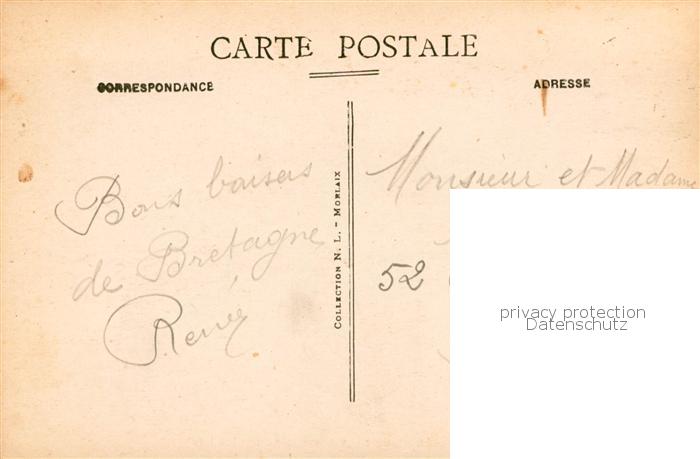 CARTE POSTALE
CORRESPONDANCE
ADRESSE
Bons baisers
de Bretagne
Renée
COLLECTION N. L. - MORLAIX
Monsieur et Madame
52
privacy protection
Datenschutz